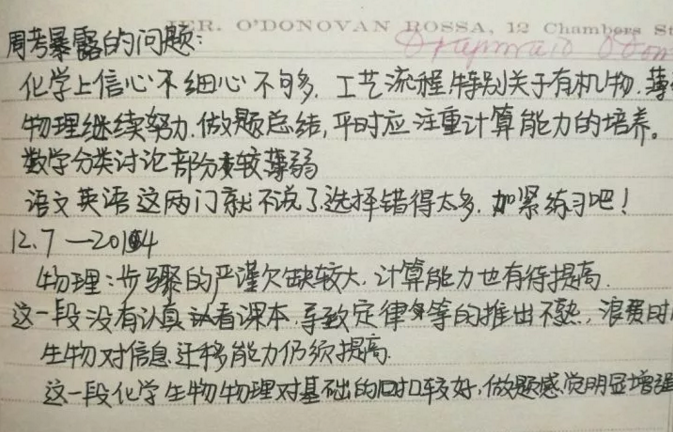 JER. O'DONOVAN ROSSA, 12 Chambers St
周考暴露的问题:
化学上信心不细心不够. 工艺流程特别关于有机物.薄
物理继续努力.做题总结,平时应注重计算能力的培养。
数学分类讨论部分较薄弱
语文英语这两门就不说了选择错得太多.加紧练习吧!
12.7—2014
物理:步骤的严谨欠缺较大.计算能力也有待提高.
这一段没有认真看课本.导致定律等的推出不熟,浪费时
生物对信息迁移能力仍须提高.
这一段化学生物物理对基础的较好,做题感觉明显增强